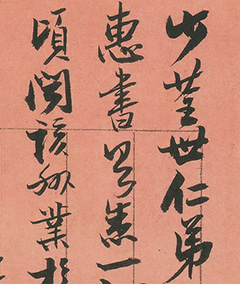 少荃世仁弟
惠書具悉一
頃閱該業於